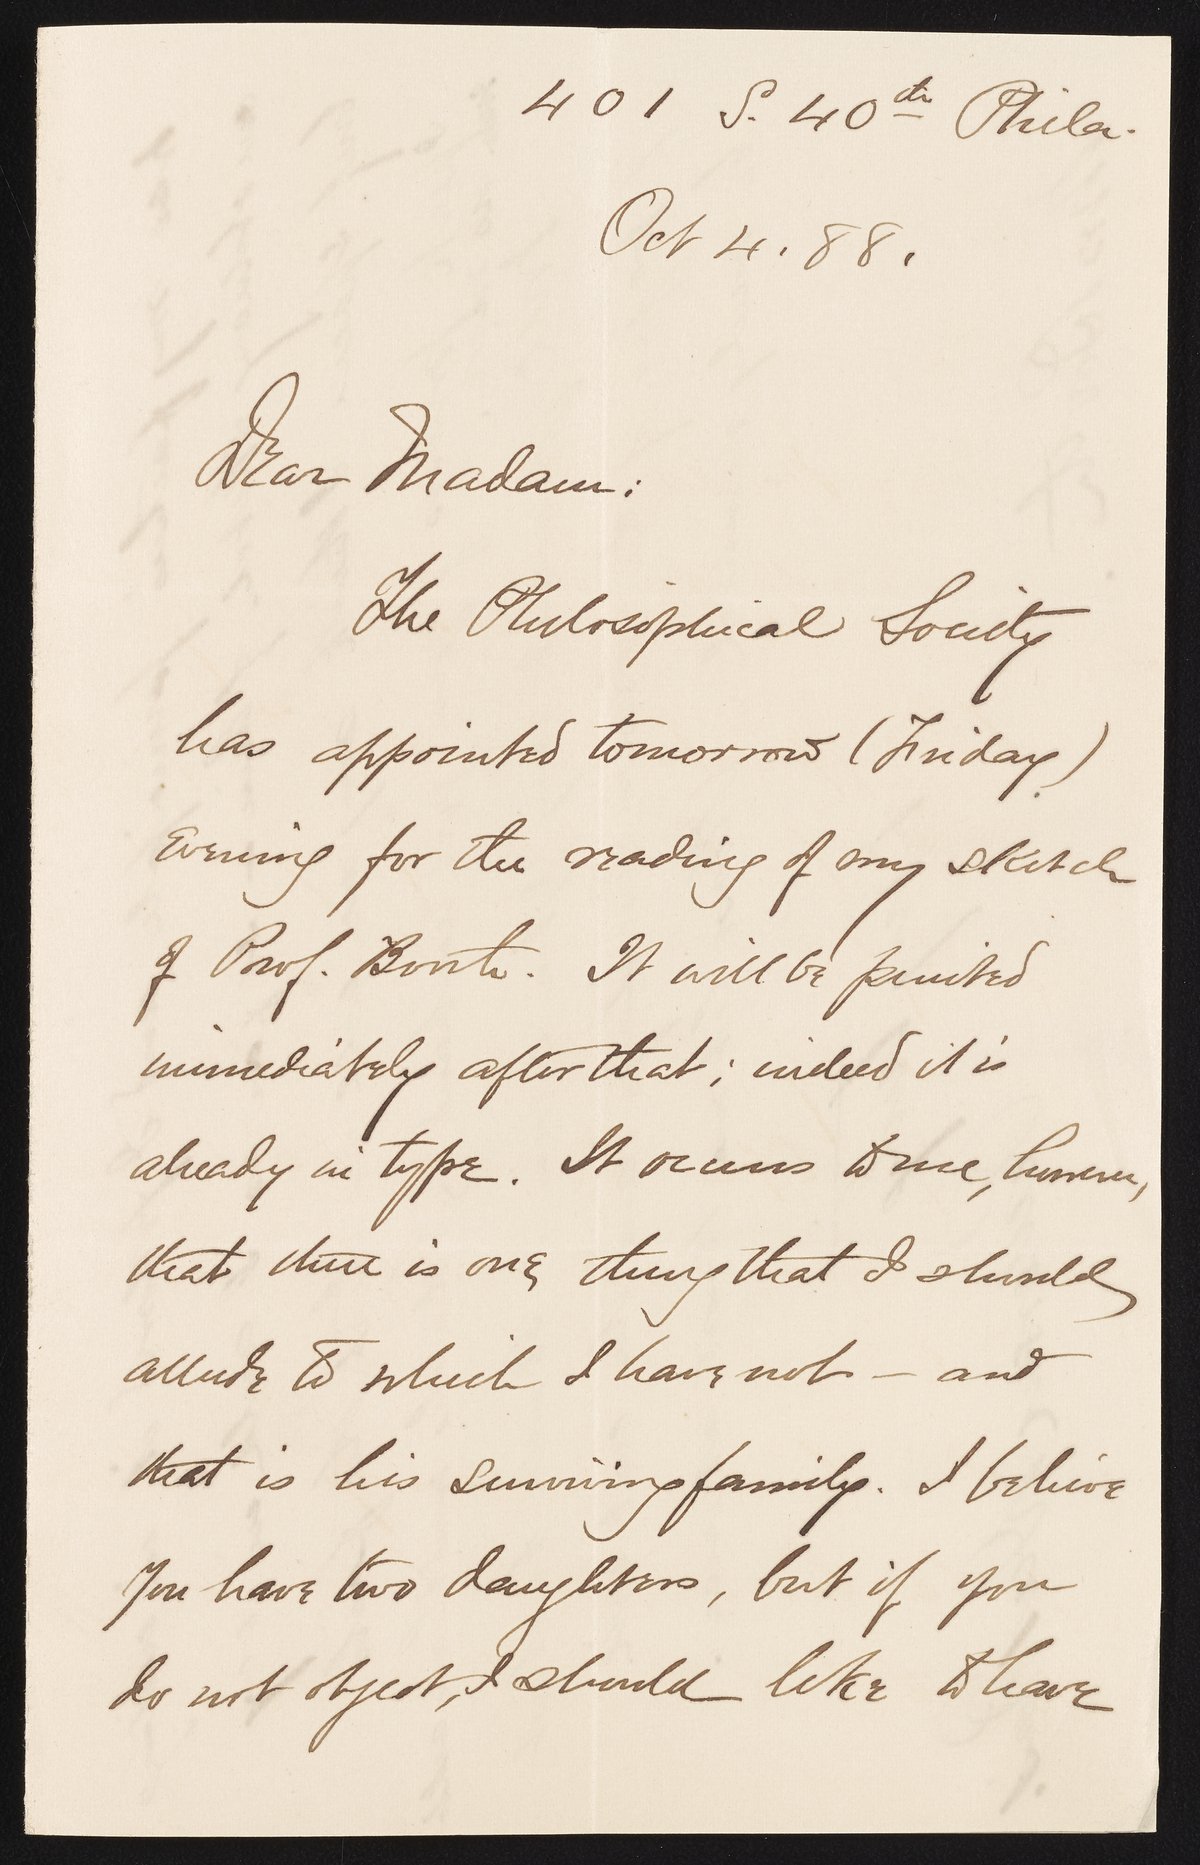 401 S. 40th Phila.
Oct 4. 88.
Dear Madam:
The Philosophical Society
has appointed tomorrow (Friday)
evening for the reading of my sketch
of Prof. Booth. It will be printed
immediately after that; indeed it is
already in type. It occurs to me, however,
that there is one thing that I should
allude to which I have not — and
that is his surviving family. I believe
you have two daughters, but if you
do not object, I should like to have